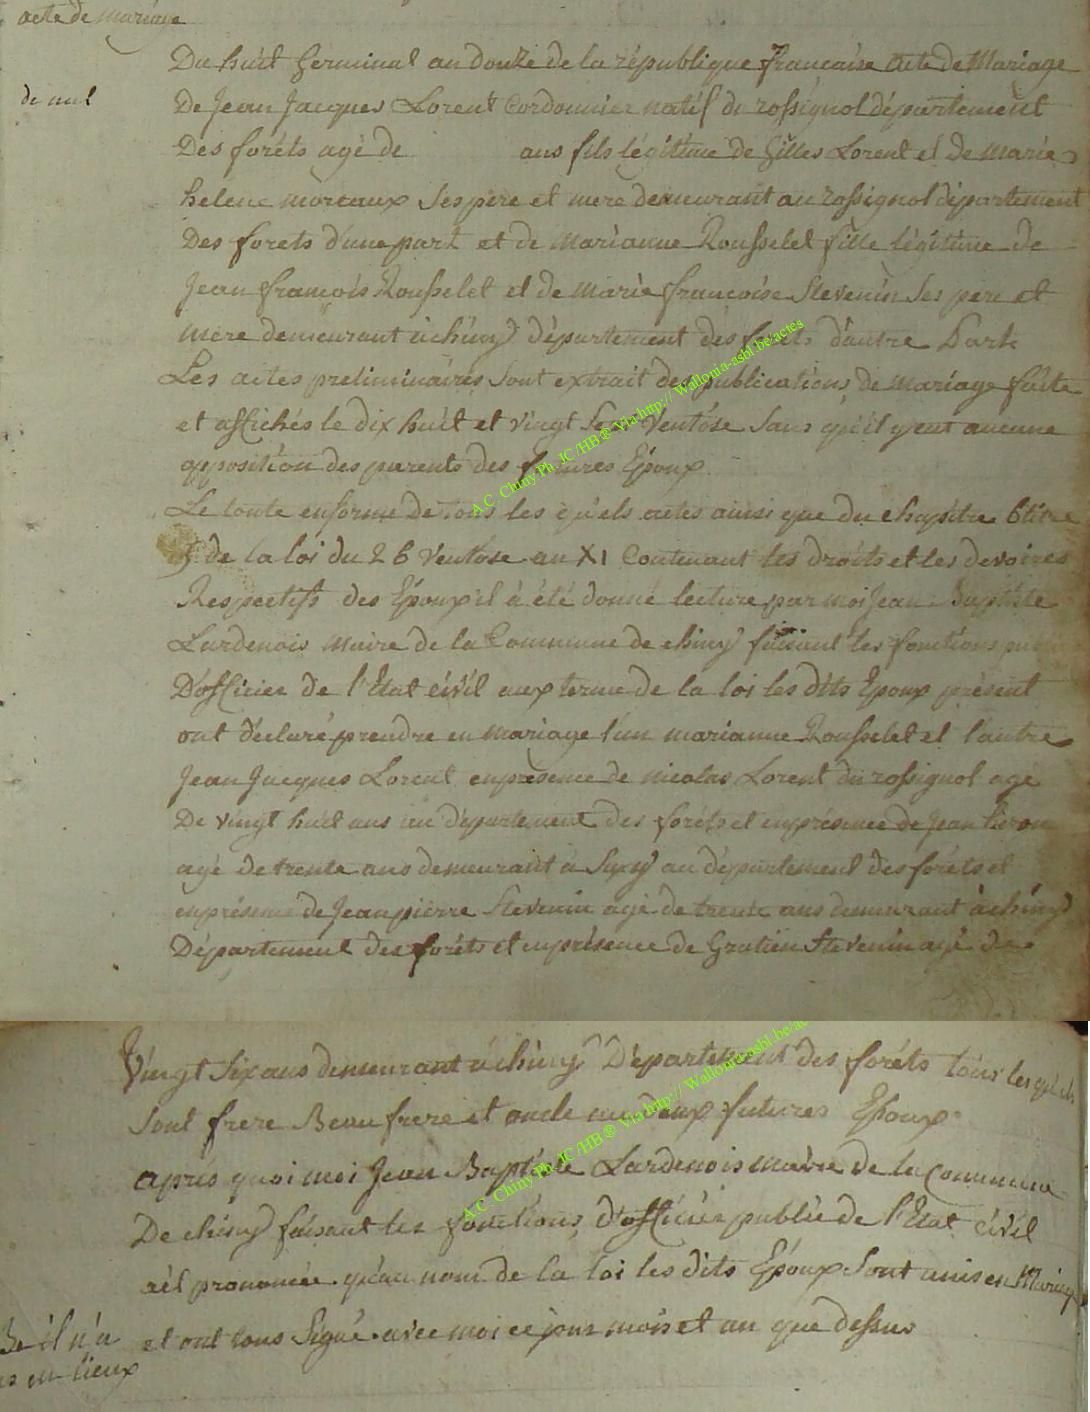 acte de mariage
Du huit Germinal an douze de la république francaise acte de Mariage
de nul
De Jean Jacques Lorent Cordonnier natif du rossignol département
Des forêts agé de ans fils légitime de Gilles Lorent et de Marie
helene moreaux Ses pere et mere demeurant au rossignol département
Des forets d'une part et de Marianne Rousselet fille légitime de
Jean françois Rousselet et de Marie francoise Stevenin Ses pere et
mere demeurant à chiny département des forêts d'autre Part
Les actes preliminaires Sont extrait des publications de mariage faite
et affichés le dix huit et vingt Ventôse Sans qu'il y eut aucune
opposition des parents des futures Epoux
Le toute enforme De tous les qu'els actes ainsi que du chapitre 6 titre
5 de la loi du 26 Ventose an XI Contenant les droits et les devoires
Respectifs des Epoux il à été donné lecture par moi Jean Baptiste
Lardenois Maire de la Commune de chiny faisant les fonctions public
D'officier de l'Etat civil aux terme de la loi les dits Epoux présent
ont déclaré prendre en mariage l'un marianne Rousselet et l'autre
Jean Jacques Lorent enpresence de nicolas Lorent du rossignol agé
De vingt huit ans au département des forêts et enprésence de Jean
agé de trente ans demeurant à Suxy au département des forêts et
enprésence de Jean pierre Stevenin agé de trente ans demeurant à chiny
Département des forêts et enprésence de Gratien Stevenin agé de
Vingt Six ans demeurant à chiny Département des forêts tous les quels
Sont frere Beau frere et oncle au deux futures Epoux
apres quoi moi Jean Baptiste Lardenois maire de la Commune
De chiny faisant les fonctions d'officier public de l'Etat civil
ait prononcée qu'au nom de la loi les dits Epoux Sont unis en Mariage
et ont tous Signé avec moi ce jour mois et an que dessus
il n'a
lieux
A.C. Chiny Ph. JC/HB® Via http:// Wallonia-asbl.be/actes
A.C. Chiny Ph. JC/HB® Via http:// Wallonia-asbl.be/ac